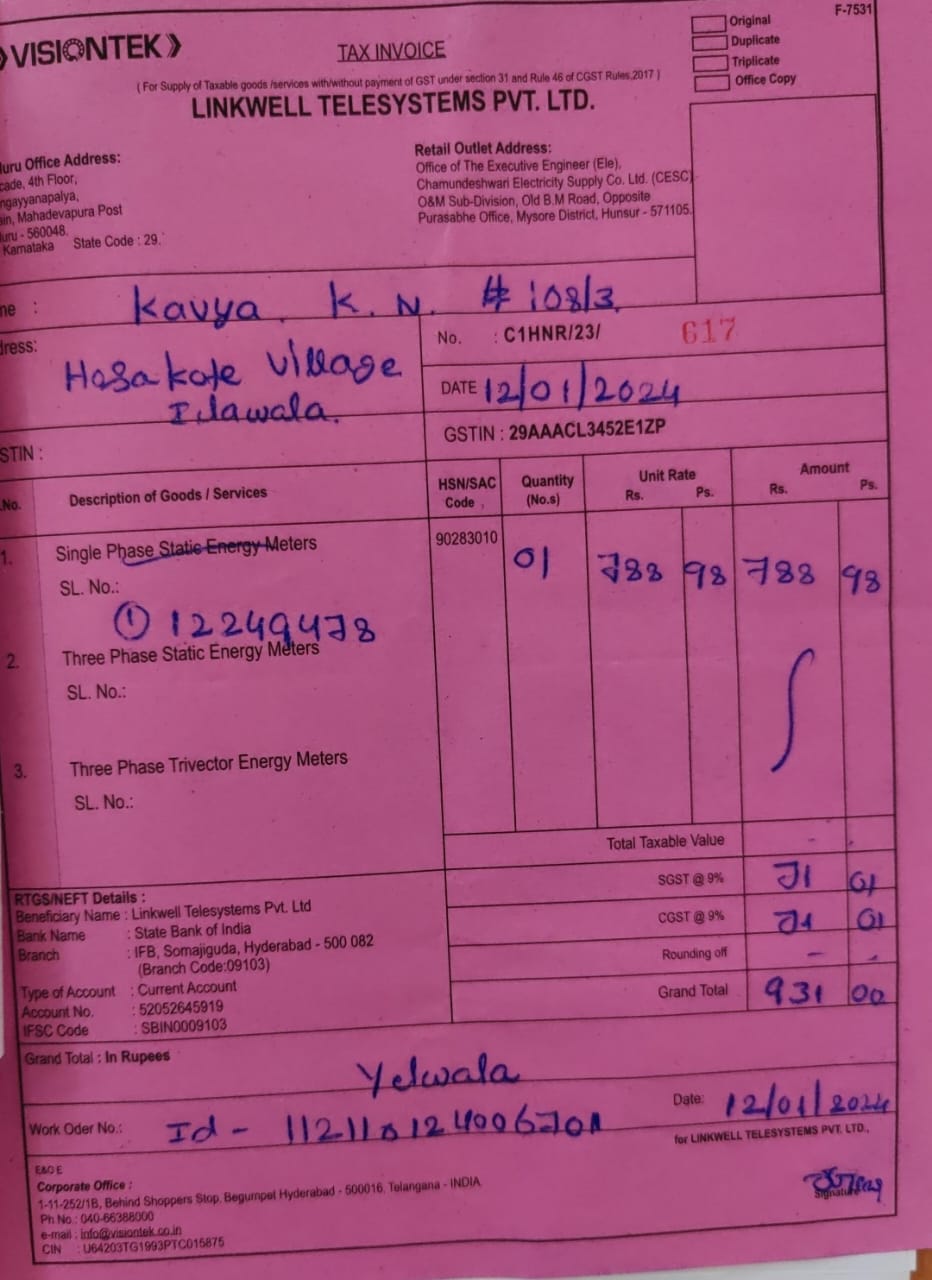 F-7531
VISIONTEK
TAX INVOICE
Original
Duplicate
Triplicate
Office Copy
( For Supply of Taxable goods /services with/without payment of GST under section 31 and Rule 46 of CGST Rules,2017 )
LINKWELL TELESYSTEMS PVT. LTD.
uru Office Address:
cade, 4th Floor,
ngayyanapalya,
ain, Mahadevapura Post
uru - 560048.
Karnataka State Code : 29.
Retail Outlet Address:
Office of The Executive Engineer (Ele),
Chamundeshwari Electricity Supply Co. Ltd. (CESC)
O&M Sub-Division, Old B.M Road, Opposite
Purasabhe Office, Mysore District, Hunsur - 571105.
me : Kavya. K. N. # 108/3
dress: Hosakote Village
Ilawala.
No. : C1HNR/23/ 617
DATE 12/01/2024
STIN :
GSTIN : 29AAACL3452E1ZP
.No. Description of Goods / Services HSN/SAC Code Quantity (No.s) Unit Rate Rs. Ps. Amount Rs. Ps.
1. Single Phase Static Energy Meters 90283010 01 788 98 788 98
SL. No.:
① 12249478
2. Three Phase Static Energy Meters
SL. No.:
3. Three Phase Trivector Energy Meters
SL. No.:
Total Taxable Value - .
SGST @ 9% 71 01
CGST @ 9% 71 01
Rounding off - .
Grand Total 931 00
RTGS/NEFT Details :
Beneficiary Name : Linkwell Telesystems Pvt. Ltd
Bank Name : State Bank of India
Branch : IFB, Somajiguda, Hyderabad - 500 082
(Branch Code:09103)
Type of Account : Current Account
Account No. : 52052645919
IFSC Code : SBIN0009103
Grand Total : In Rupees
Yelwala
Work Oder No.: Id -
Date: 12/01/2024
for LINKWELL TELESYSTEMS PVT. LTD.,
E&O E
Corporate Office :
1-11-252/1B, Behind Shoppers Stop, Begumpet Hyderabad - 500016, Telangana - INDIA
Ph No.: 040-66388000
e-mail : info@visiontek.co.in
CIN : U64203TG1993PTC015875
Signature